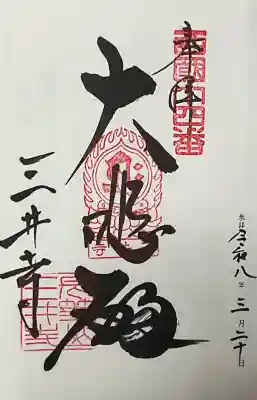 奉拝
西国十四番
大悲殿
三井寺
参拝 令和八年三月二十日